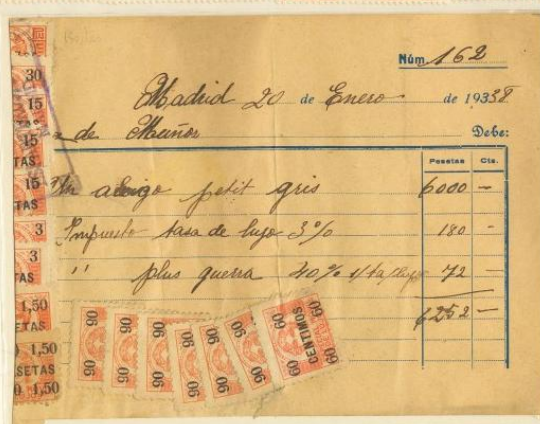 Núm 162
Madrid 20 de Enero de 1938
de Muñoz Debe:
Pesetas Cts.
Un abrigo petit gris 6000 —
Impuesto tasa de lujo 3% 180 —
" plus guerra 40% s/ta lujo 72 —
6252 —
30
15
15
TAS
15
TAS
3
3
TAS
1,50
ETAS
1,50
SETAS
1,50
90 90 90 90 90 90 60
90 90 90 90 90 90 60
CENTIMOS
60
60